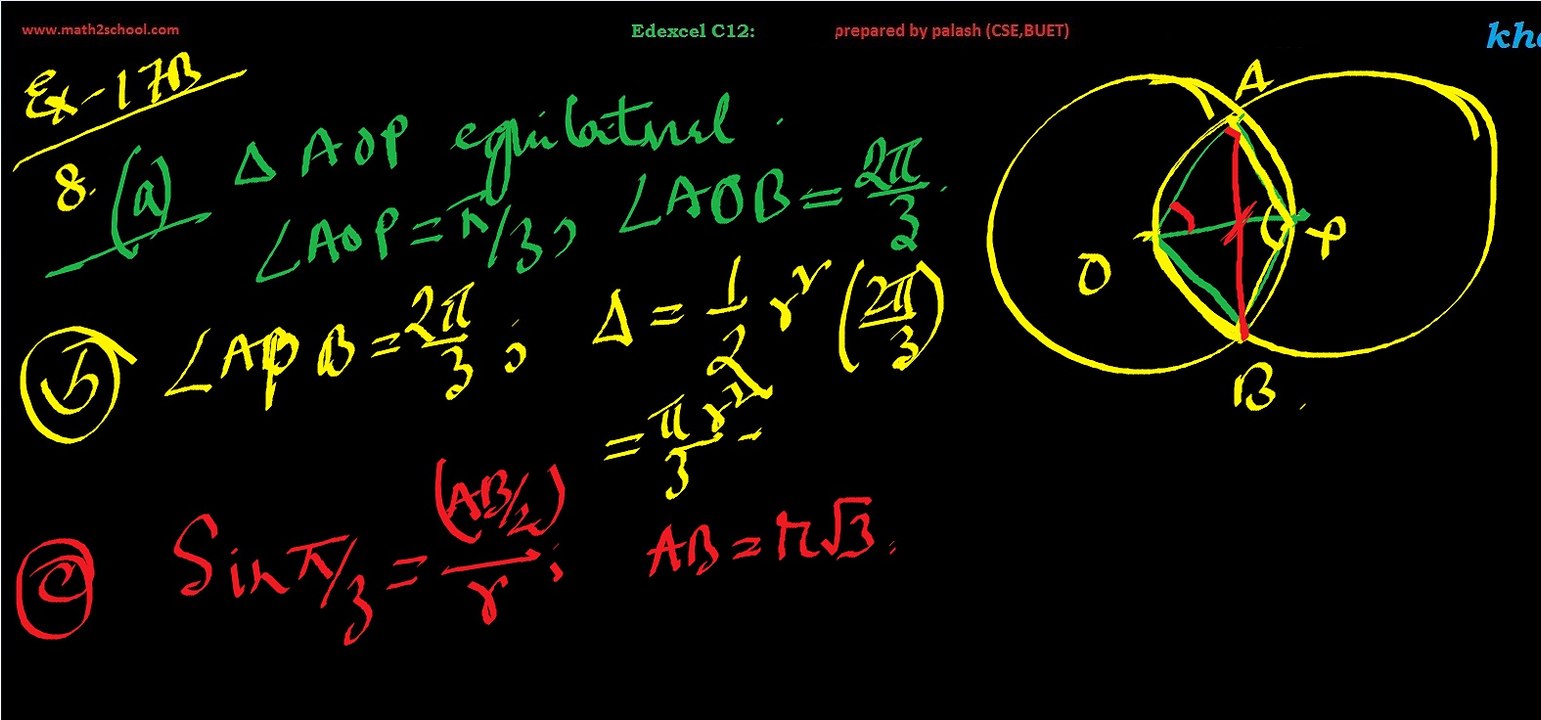 www.math2school.com
Edexcel C12:
prepared by palash (CSE,BUET)
Ex-17B
8. (a) Δ AOP equilateral.
∠AOP = π/3, ∠AOB = 2π/3.
(b) ∠APB = 2π/3; Δ = 1/2 r² (2π/3)
= πr²/3
(c) Sin π/3 = (AB/2)/r; AB = r√3.
A
O
P
B.